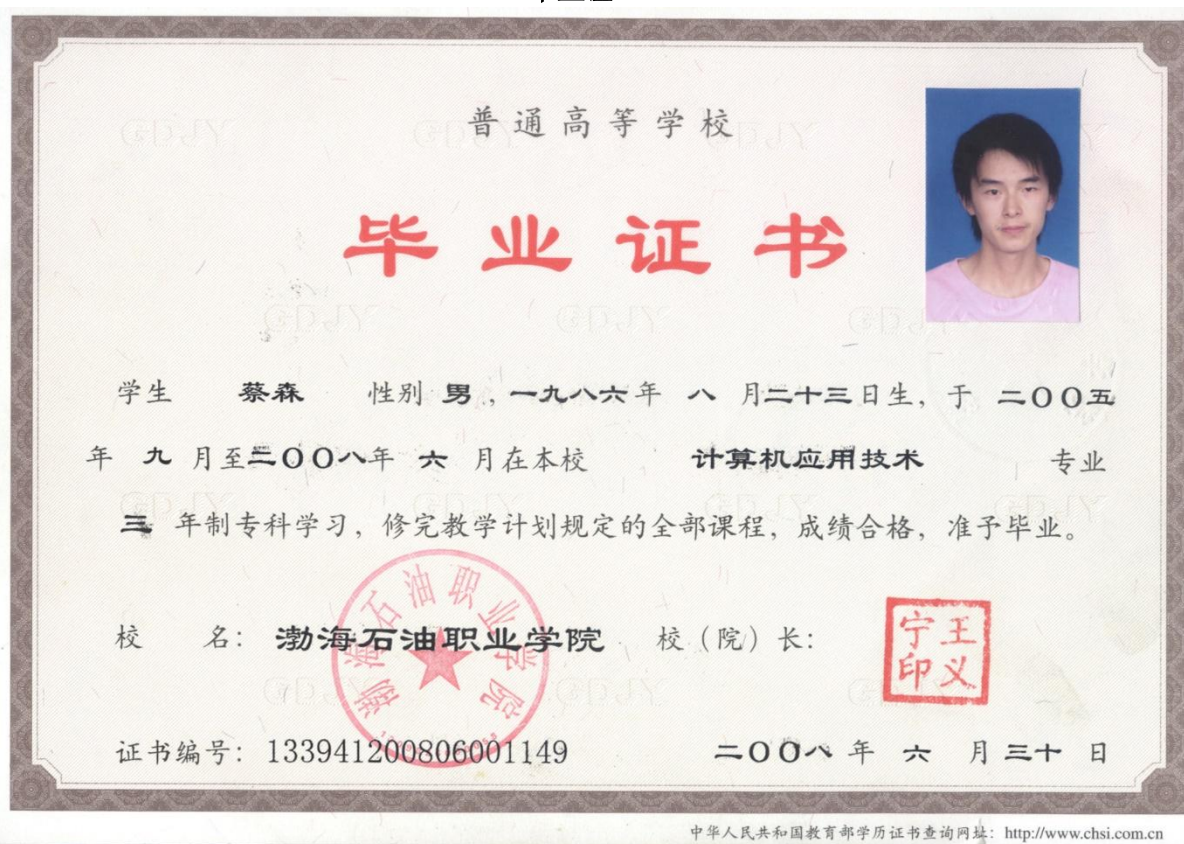 普通高等学校
毕业证书
学生 蔡森 性别 男，一九八六年 八 月二十三日生，于 二〇〇五
年 九 月至二〇〇八年 六 月在本校 计算机应用技术 专业
三 年制专科学习，修完教学计划规定的全部课程，成绩合格，准予毕业。
校 名：渤海石油职业学院 校（院）长：
渤海石油职业学院
王义宁印
证书编号：133941200806001149 二〇〇八 年 六 月 三十 日
中华人民共和国教育部学历证书查询网址：http://www.chsi.com.cn